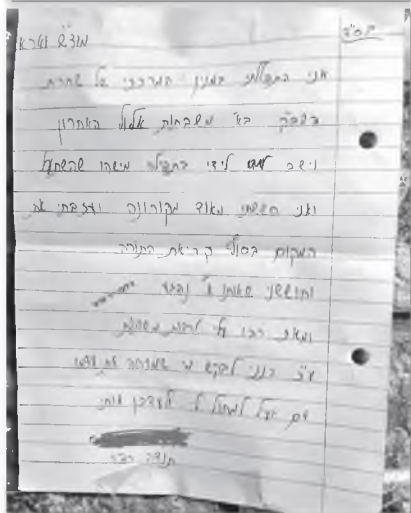 בס"ד
מוצ"ש וארא
אני התפללתי במנין המרכזי של שחרית
בשבת בא' משבתות אלול האחרון
וישב לידי בתפילה מישהו שהשתעל
ואני חששתי מאוד מקורונה ועזבתי את
המקום בסוף קריאת התורה
וחוששני שאותו א' נפגע
ומאז רבו עלי
ע"כ הנני לבקש מי שמזהה את עצמו
אם יוכל למחול לי ולעדכן אותי
תודה רבה